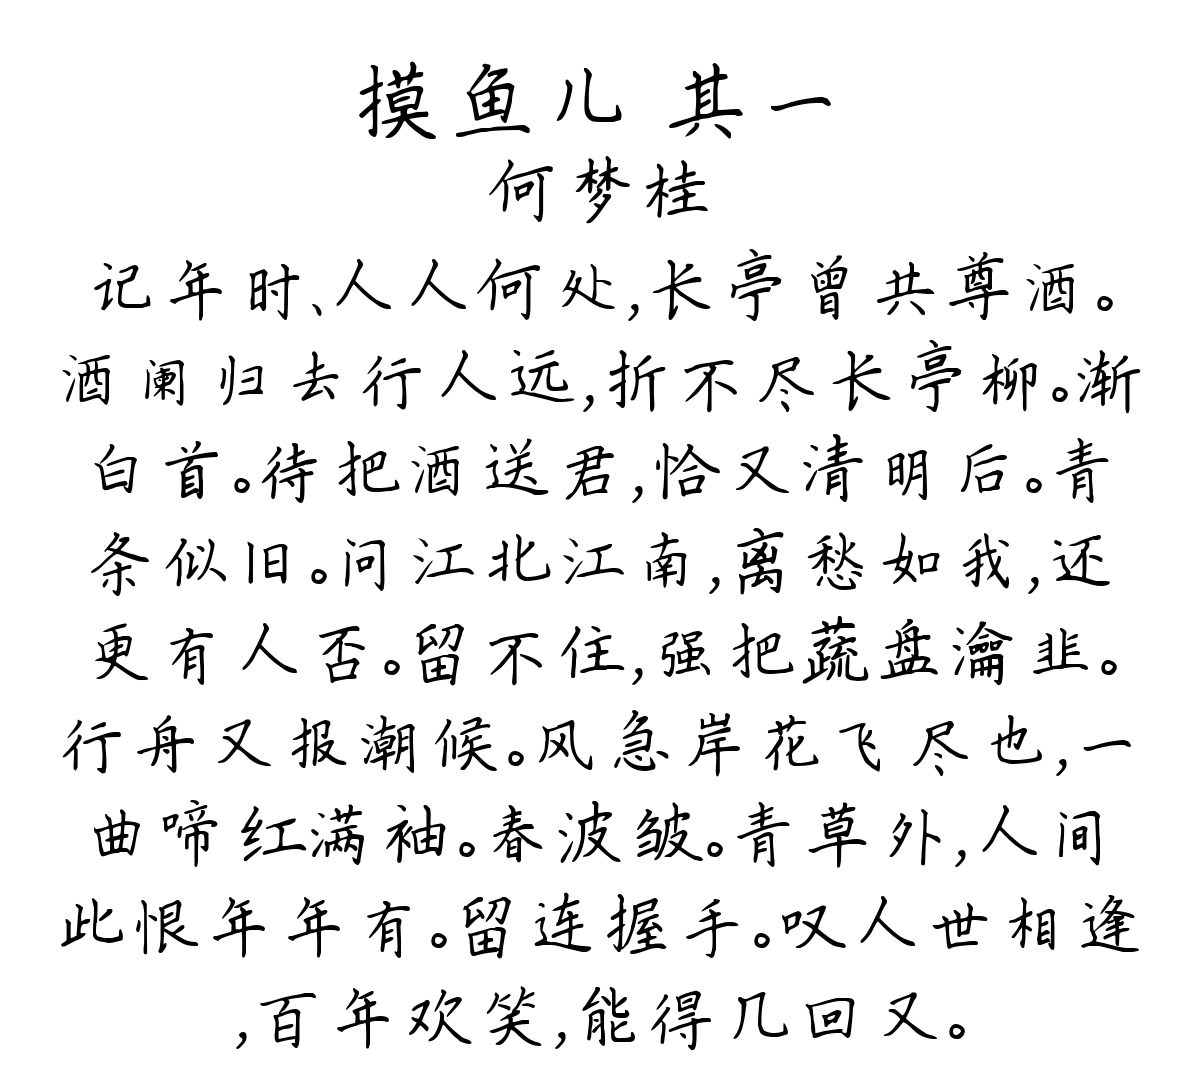 摸鱼儿 其一
何梦桂
记年时、人人何处,长亭曾共尊酒。
酒阑归去行人远,折不尽长亭柳。渐
白首。待把酒送君,恰又清明后。青
条似旧。问江北江南,离愁如我,还
更有人否。留不住,强把蔬盘瀹韭。
行舟又报潮候。风急岸花飞尽也,一
曲啼红满袖。春波皱。青草外,人间
此恨年年有。留连握手。叹人世相逢
,百年欢笑,能得几回又。